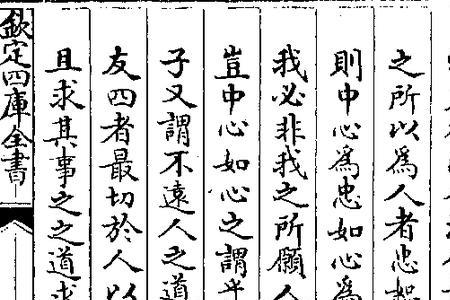 之所以為人者忠恕
則中心為忠如心為
我必非我之所願人
豈中心如心之謂乎
子又謂不遠人之道
友四者最切於人以
且求其事之之道求
欽定四庫全書